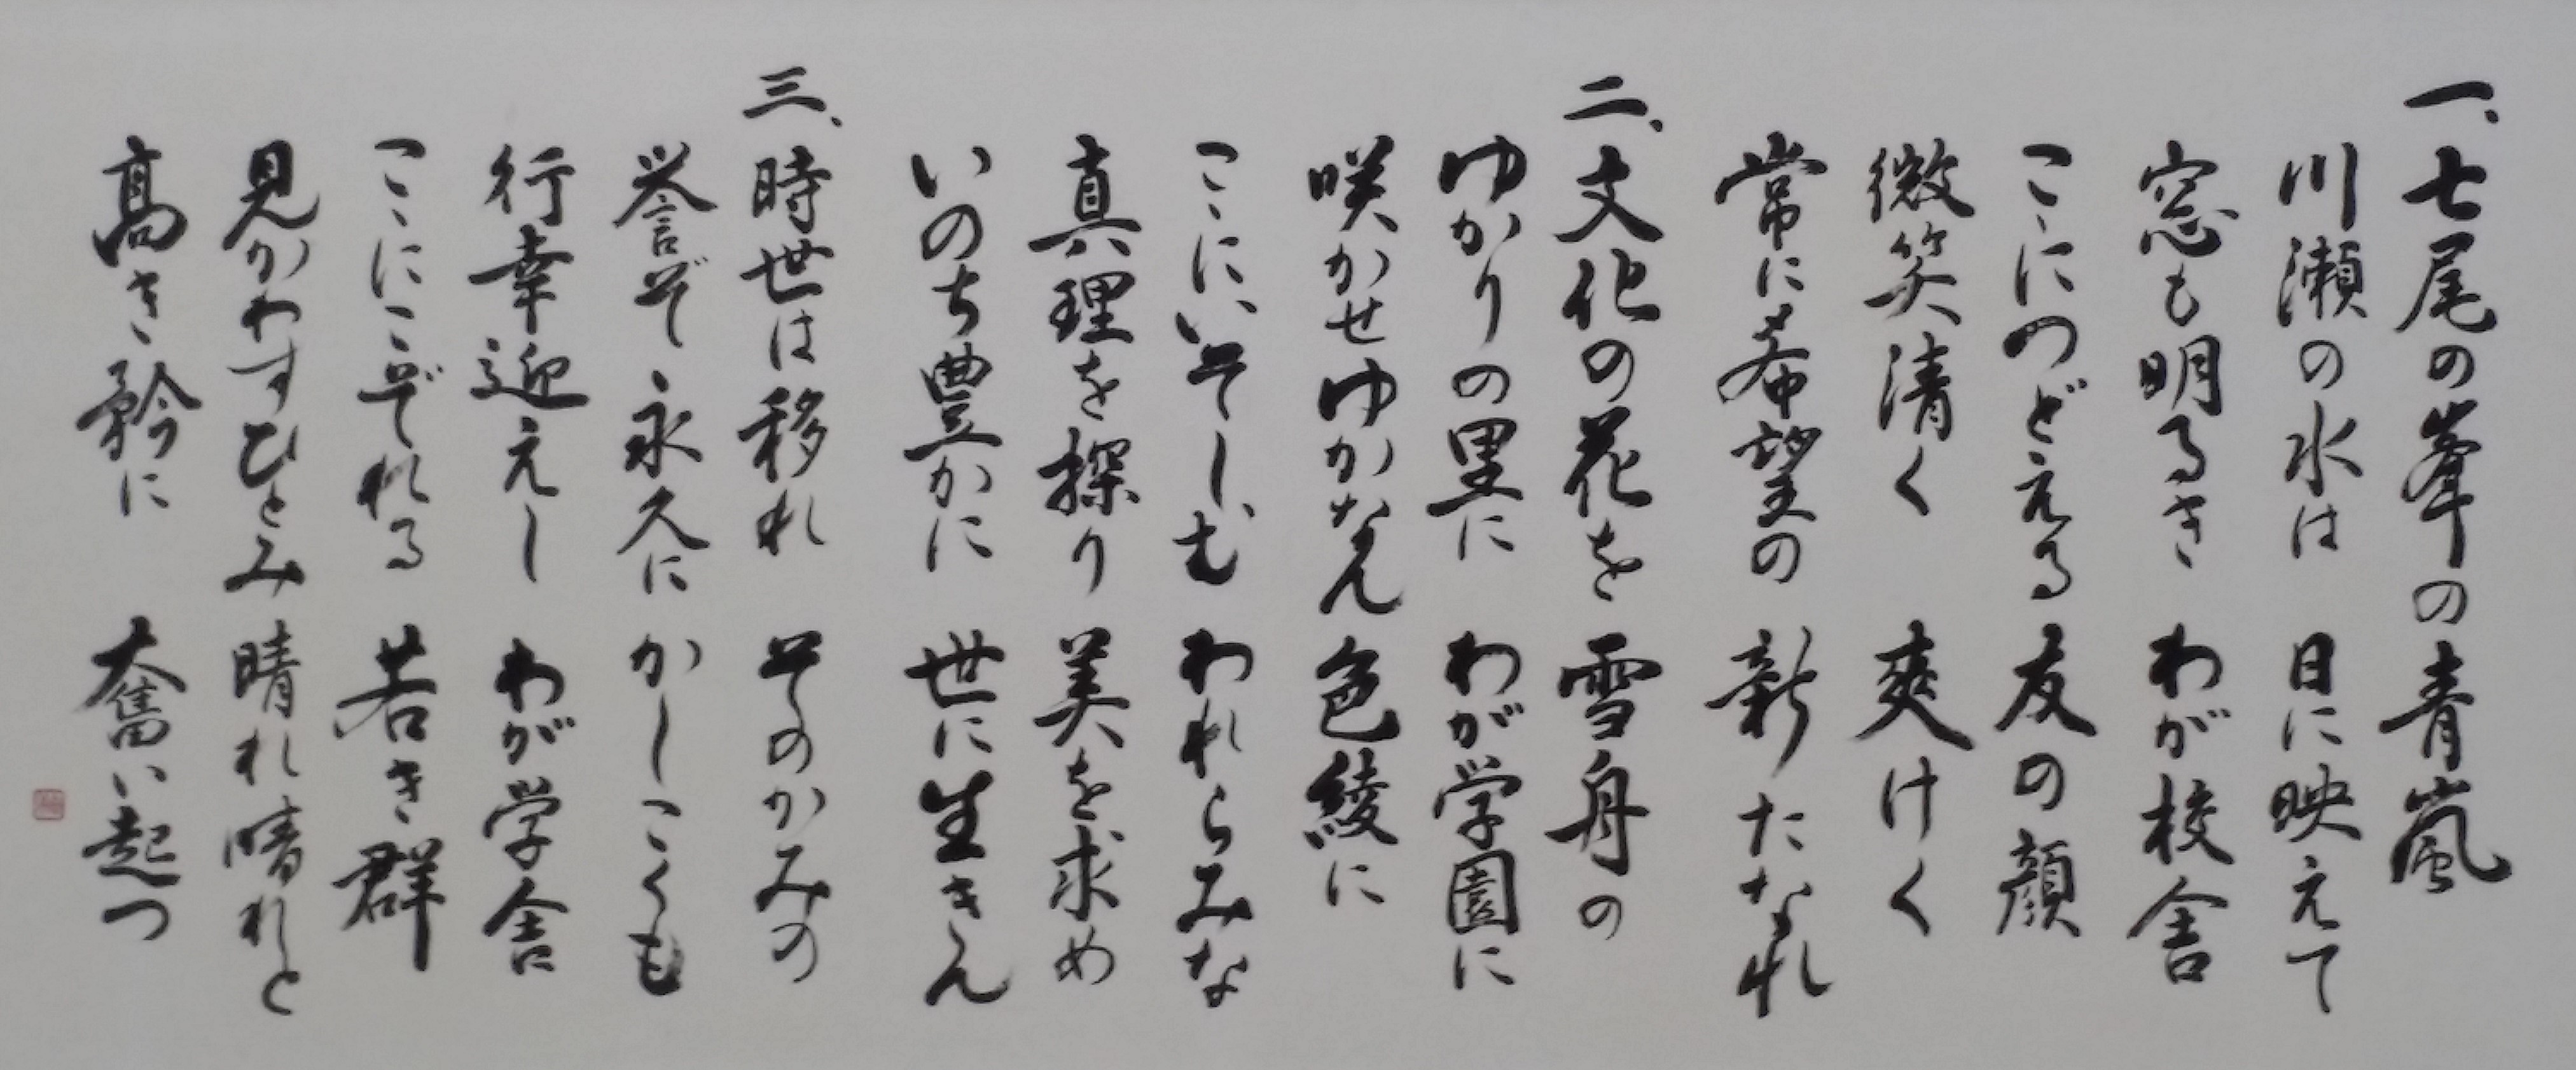 一、七尾の峯の青嵐
川瀬の水は 日に映えて
窓も明るき わが校舎
こゝにつどえる 友の顔
微笑清く 爽けく
常に希望の 新たなれ
二、文化の花を 雪舟の
ゆかりの里に わが学園に
咲かせゆかなん 色綾に
こゝにいそしむ われらみな
真理を探り 美を求め
いのち豊かに 世に生きん
三、時世は移れ そのかみの
誉ぞ永久に かしこくも
行幸迎えし わが学舎
こゝにこぞれる 若き群
見かわすひとみ 晴れ晴れと
高き矜に 奮い起つ